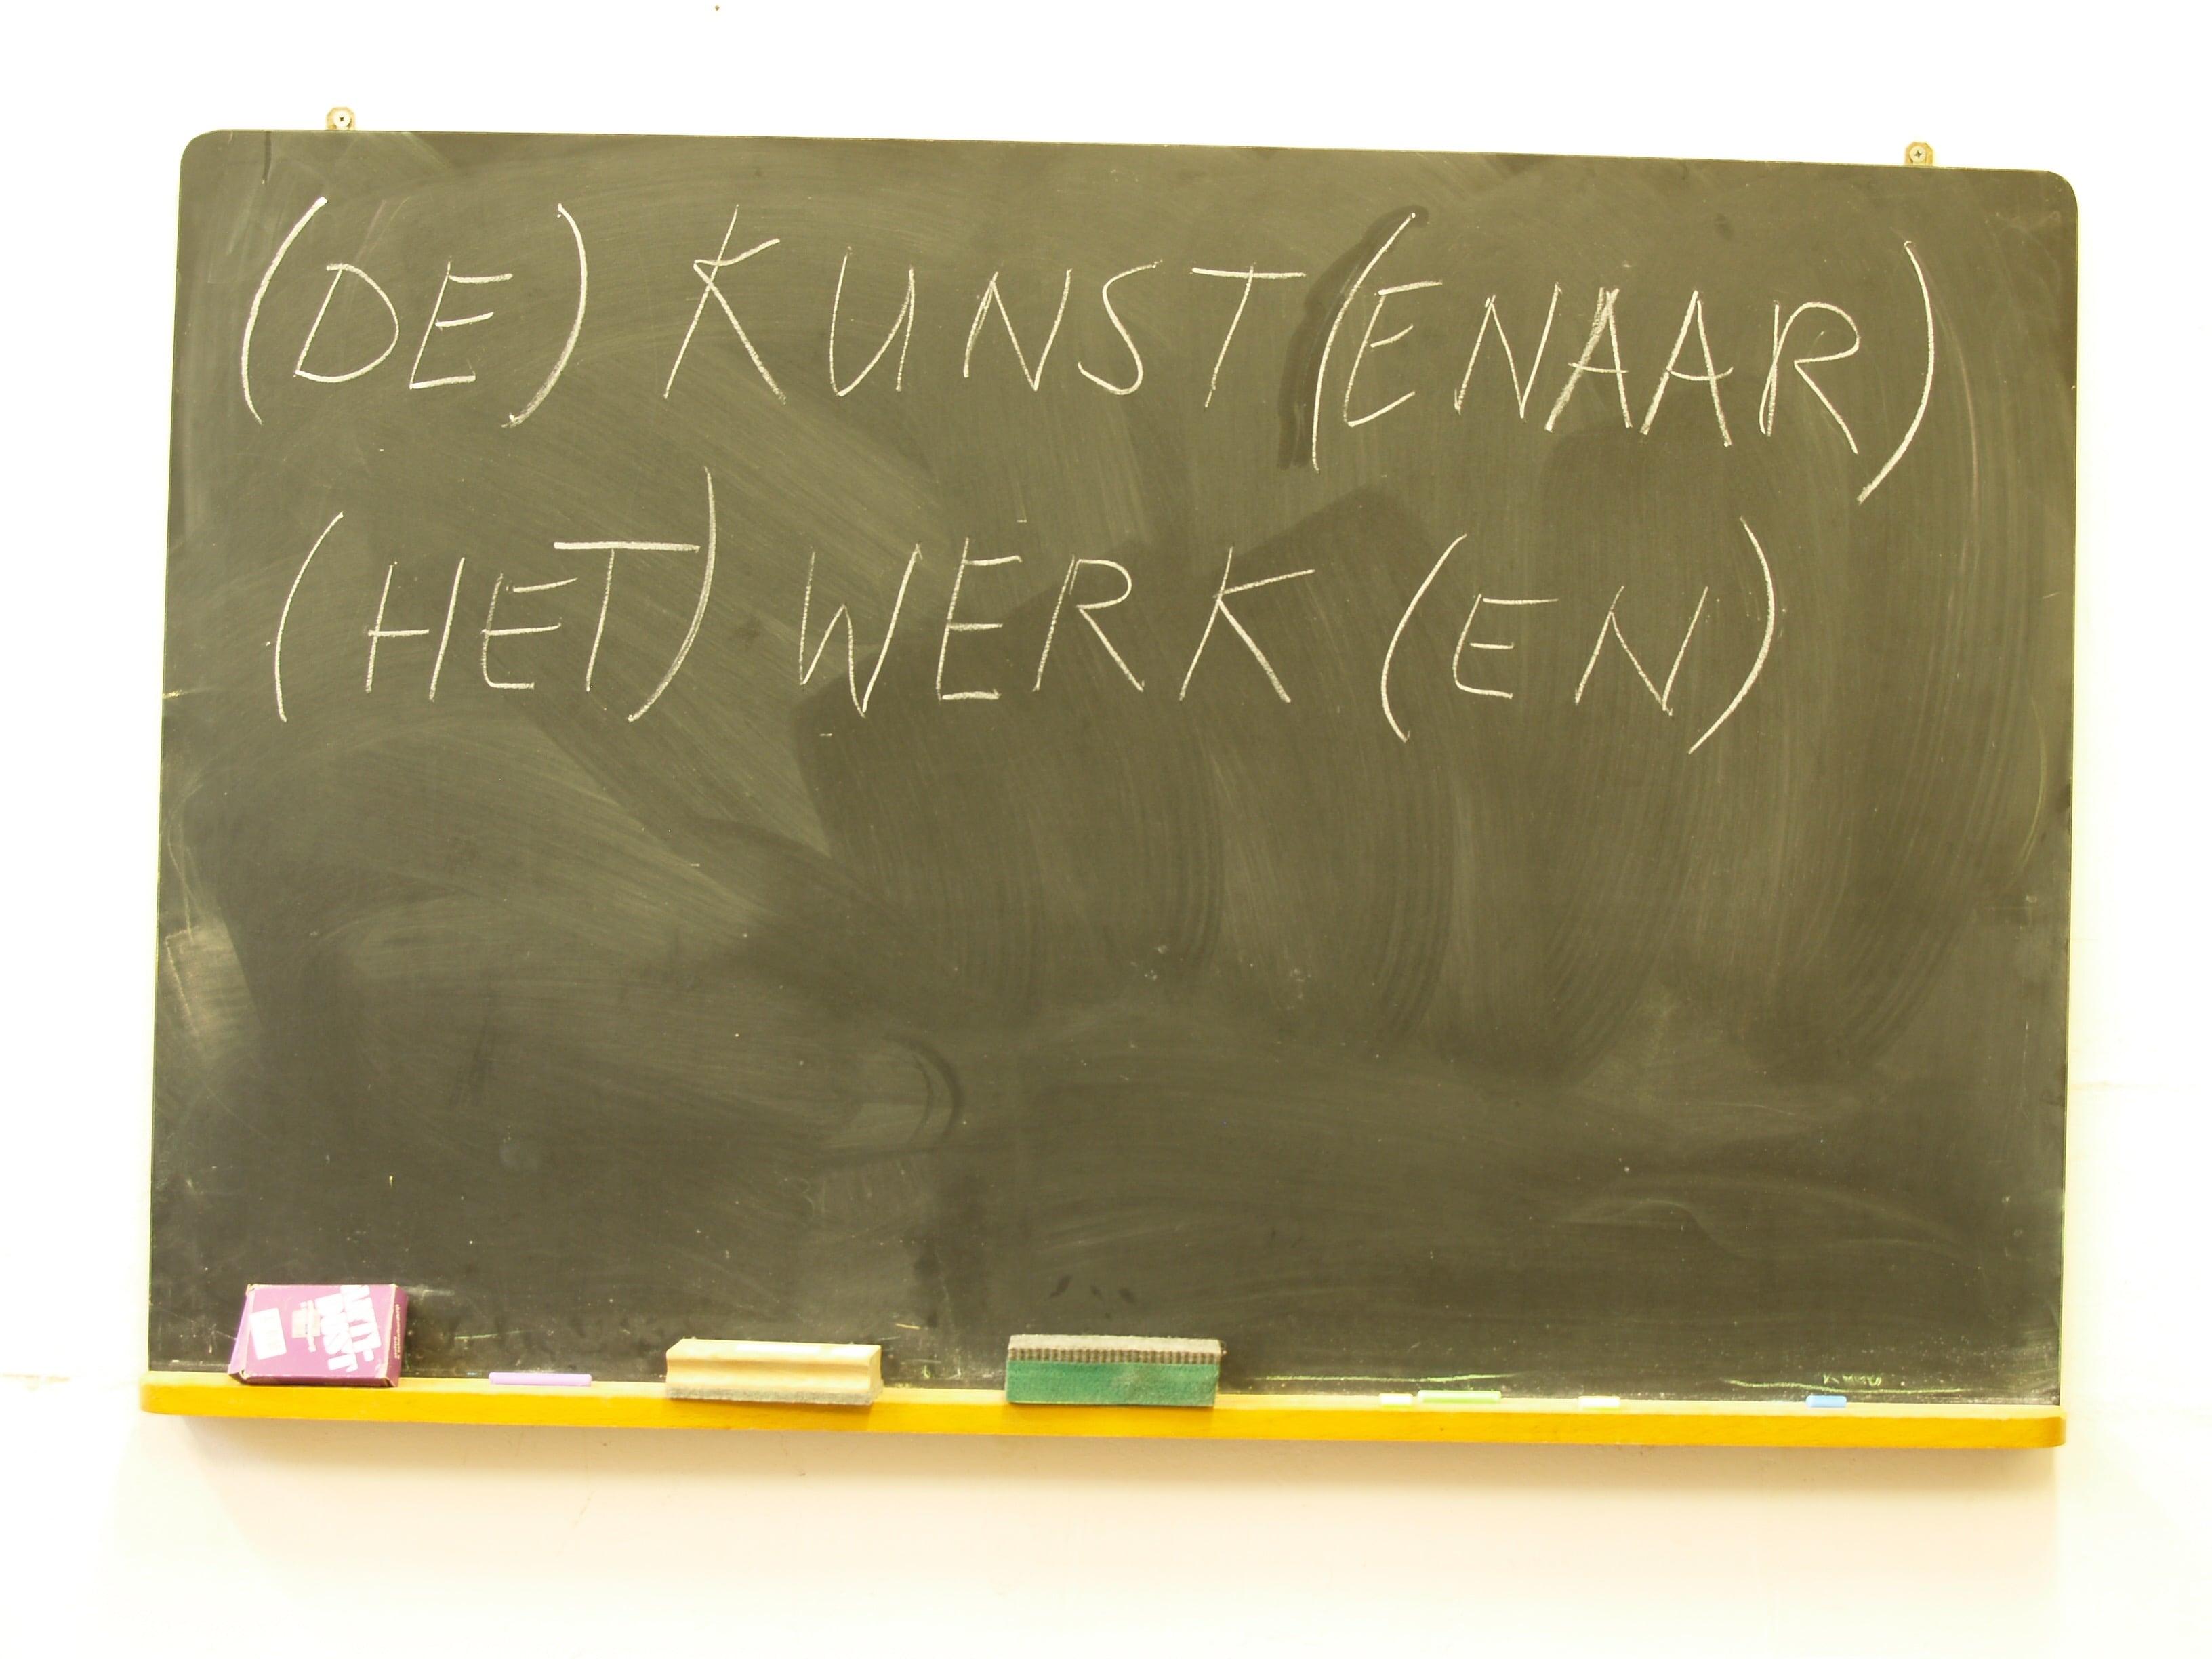 (DE) KUNST(ENAAR)
(HET) WERK (EN)